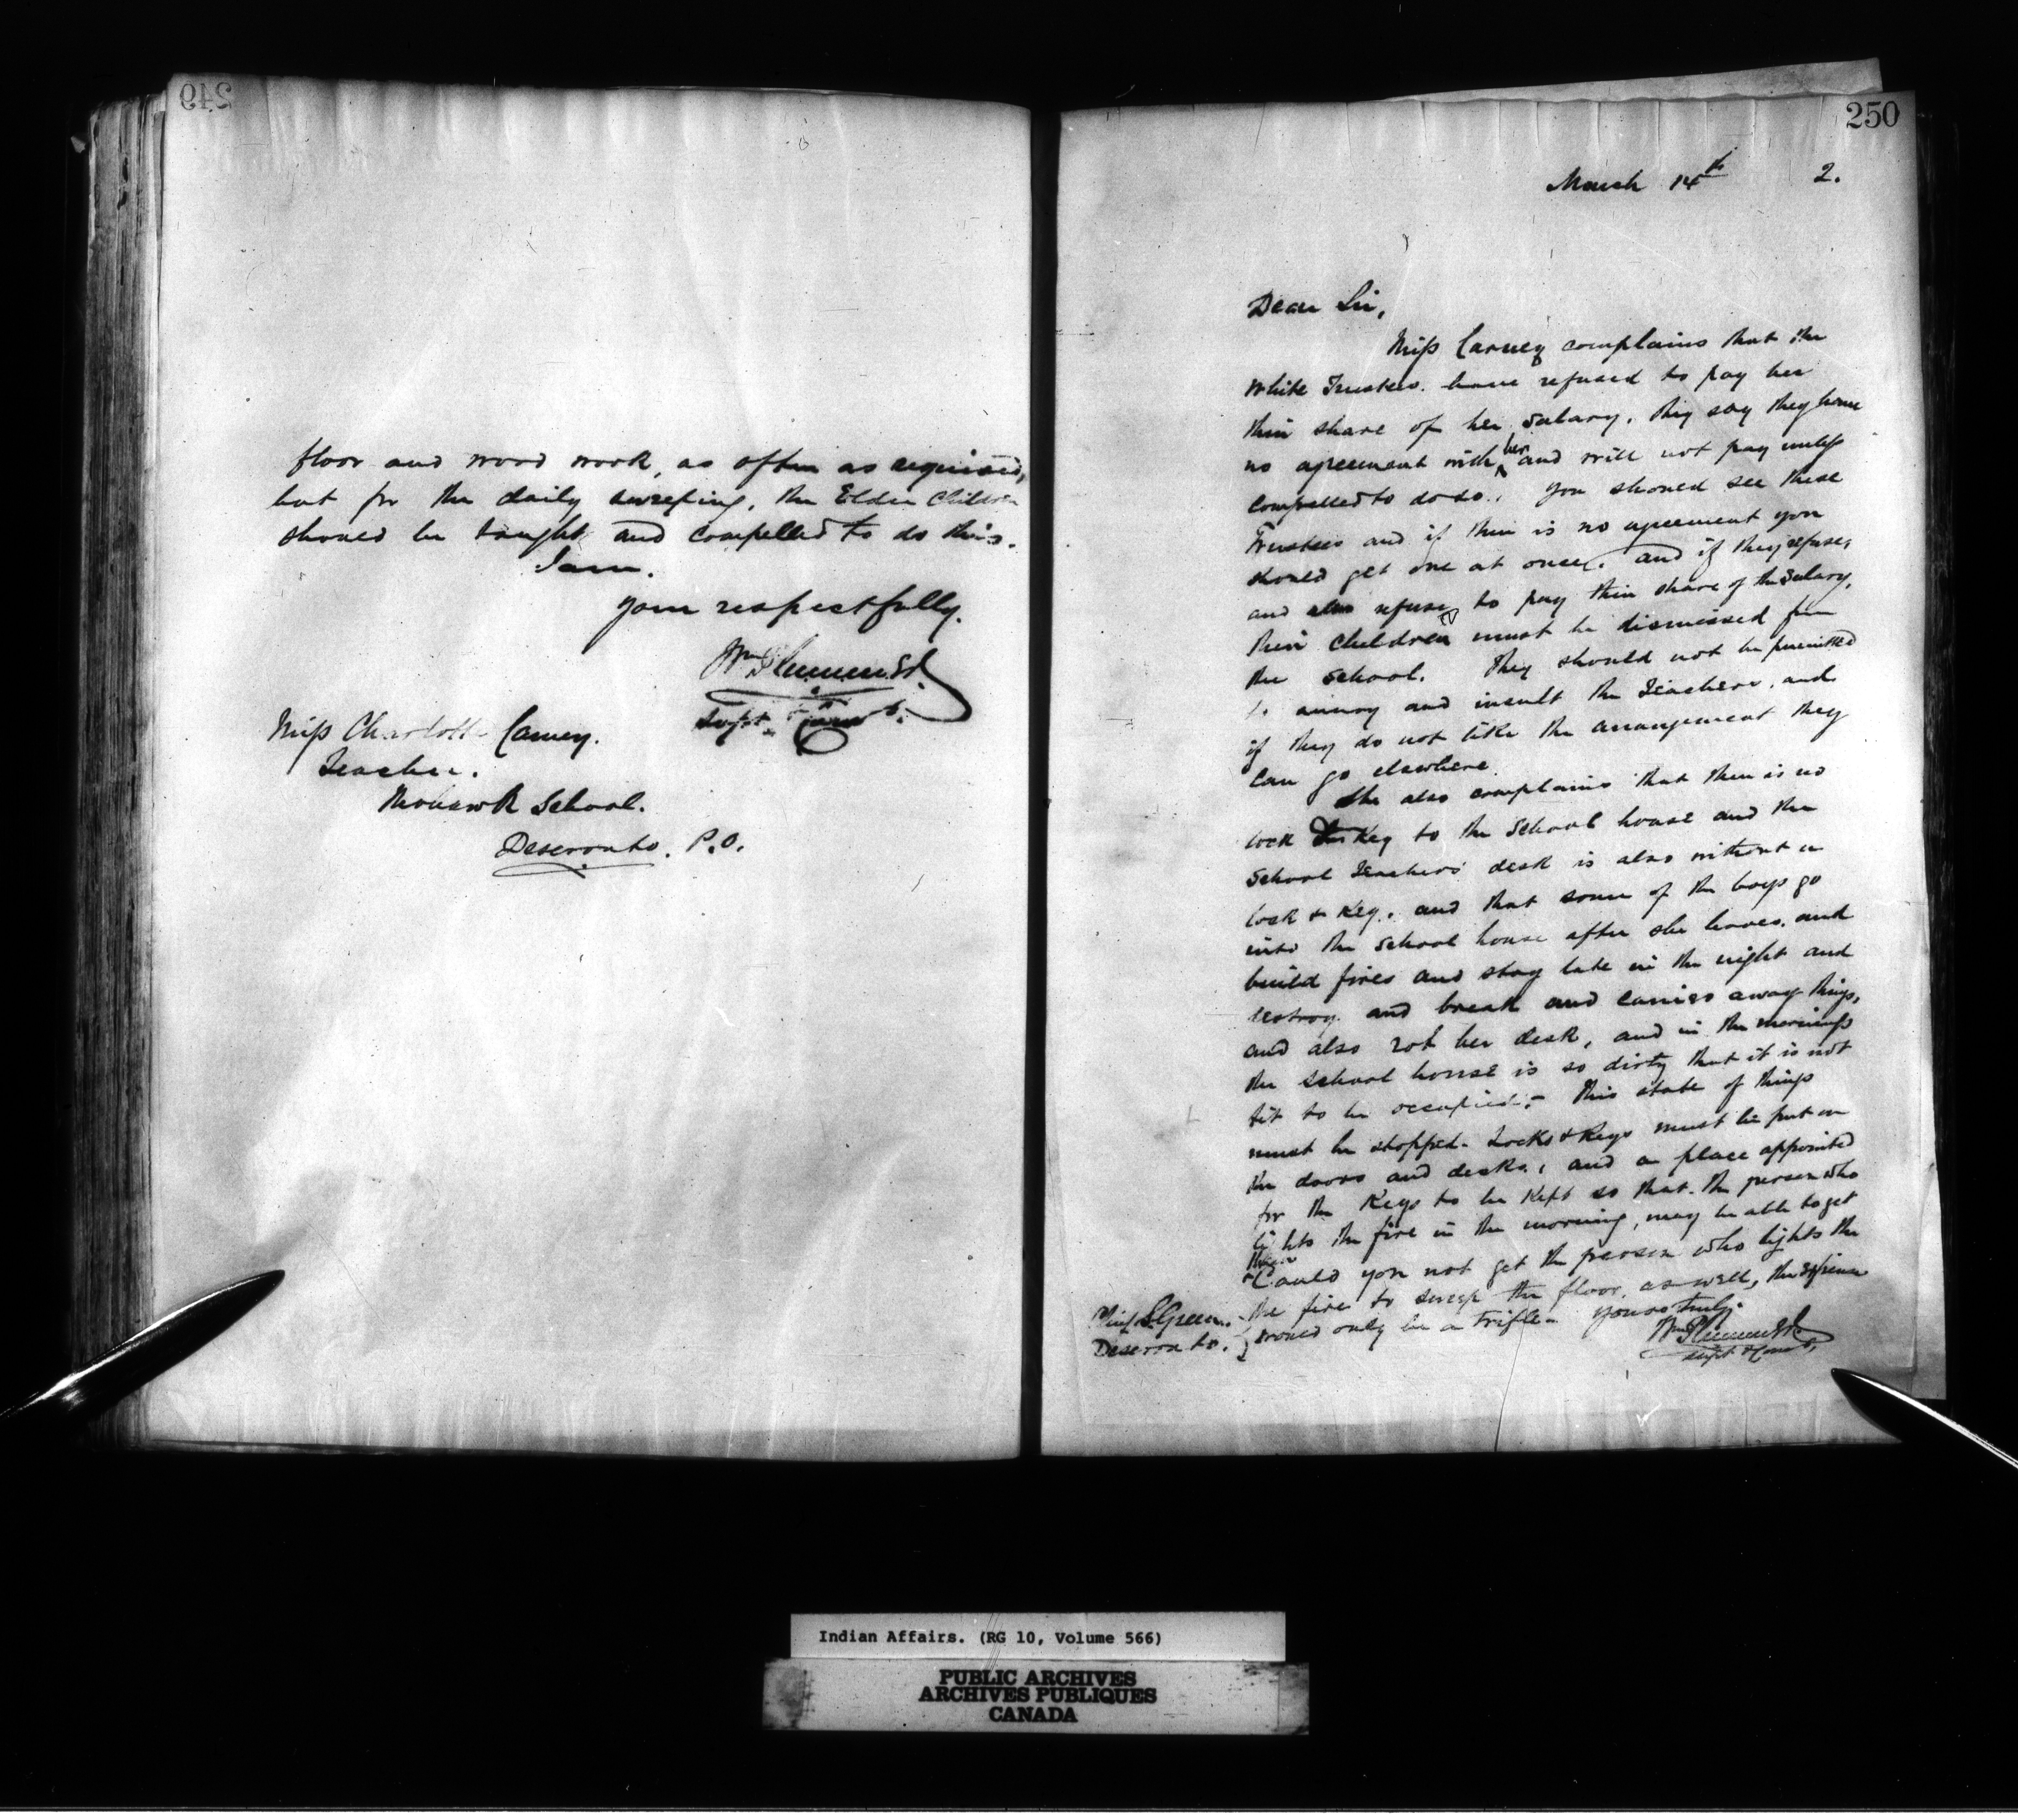 249
floor and wood work, as often as required,
but for the daily sweeping, the Elder Children
should be taught and compelled to do this.
I am.
Your respectfully.
Wm Plummer
Supt & Comr
Miss Charlotte Carney.
Teacher.
Mohawk School.
Deseronto. P.O.
250
March 14th 2.
Dear Sir,
Miss Carney complains that the
White Trustees have refused to pay her
their share of her salary, they say they have
no agreement with her and will not pay unless
compelled to do so. You should see these
Trustees and if there is no agreement you
should get one at once, and if they refuse,
and also refuse to pay their share of the salary,
their children must be dismissed from
the school. They should not be permitted
to annoy and insult the Teachers, and
if they do not like the arrangement they
can go elsewhere.
She also complains that there is no
lock & Key to the School house and the
School Teachers' desk is also without a
lock & Key, and that some of the boys go
into the School house after she leaves, and
build fires and stay late in the night and
destroy and break and carries away things,
and also rob her desk, and in the mornings
the school house is so dirty that it is not
fit to be occupied. - This state of things
must be stopped. Locks & Keys must be put on
the doors and desks, and a place appointed
for the Keys to be Kept so that the person who
lights the fire in the morning, may be able to get
them
Could you not get the person who lights the
the fire to sweep the floor, as well, the expense
would only be a trifle - Yours truly.
Chief S. Green.
Deseronto.
Wm Plummer
Supt & Comr
Indian Affairs. (RG 10, Volume 566)
PUBLIC ARCHIVES
ARCHIVES PUBLIQUES
CANADA